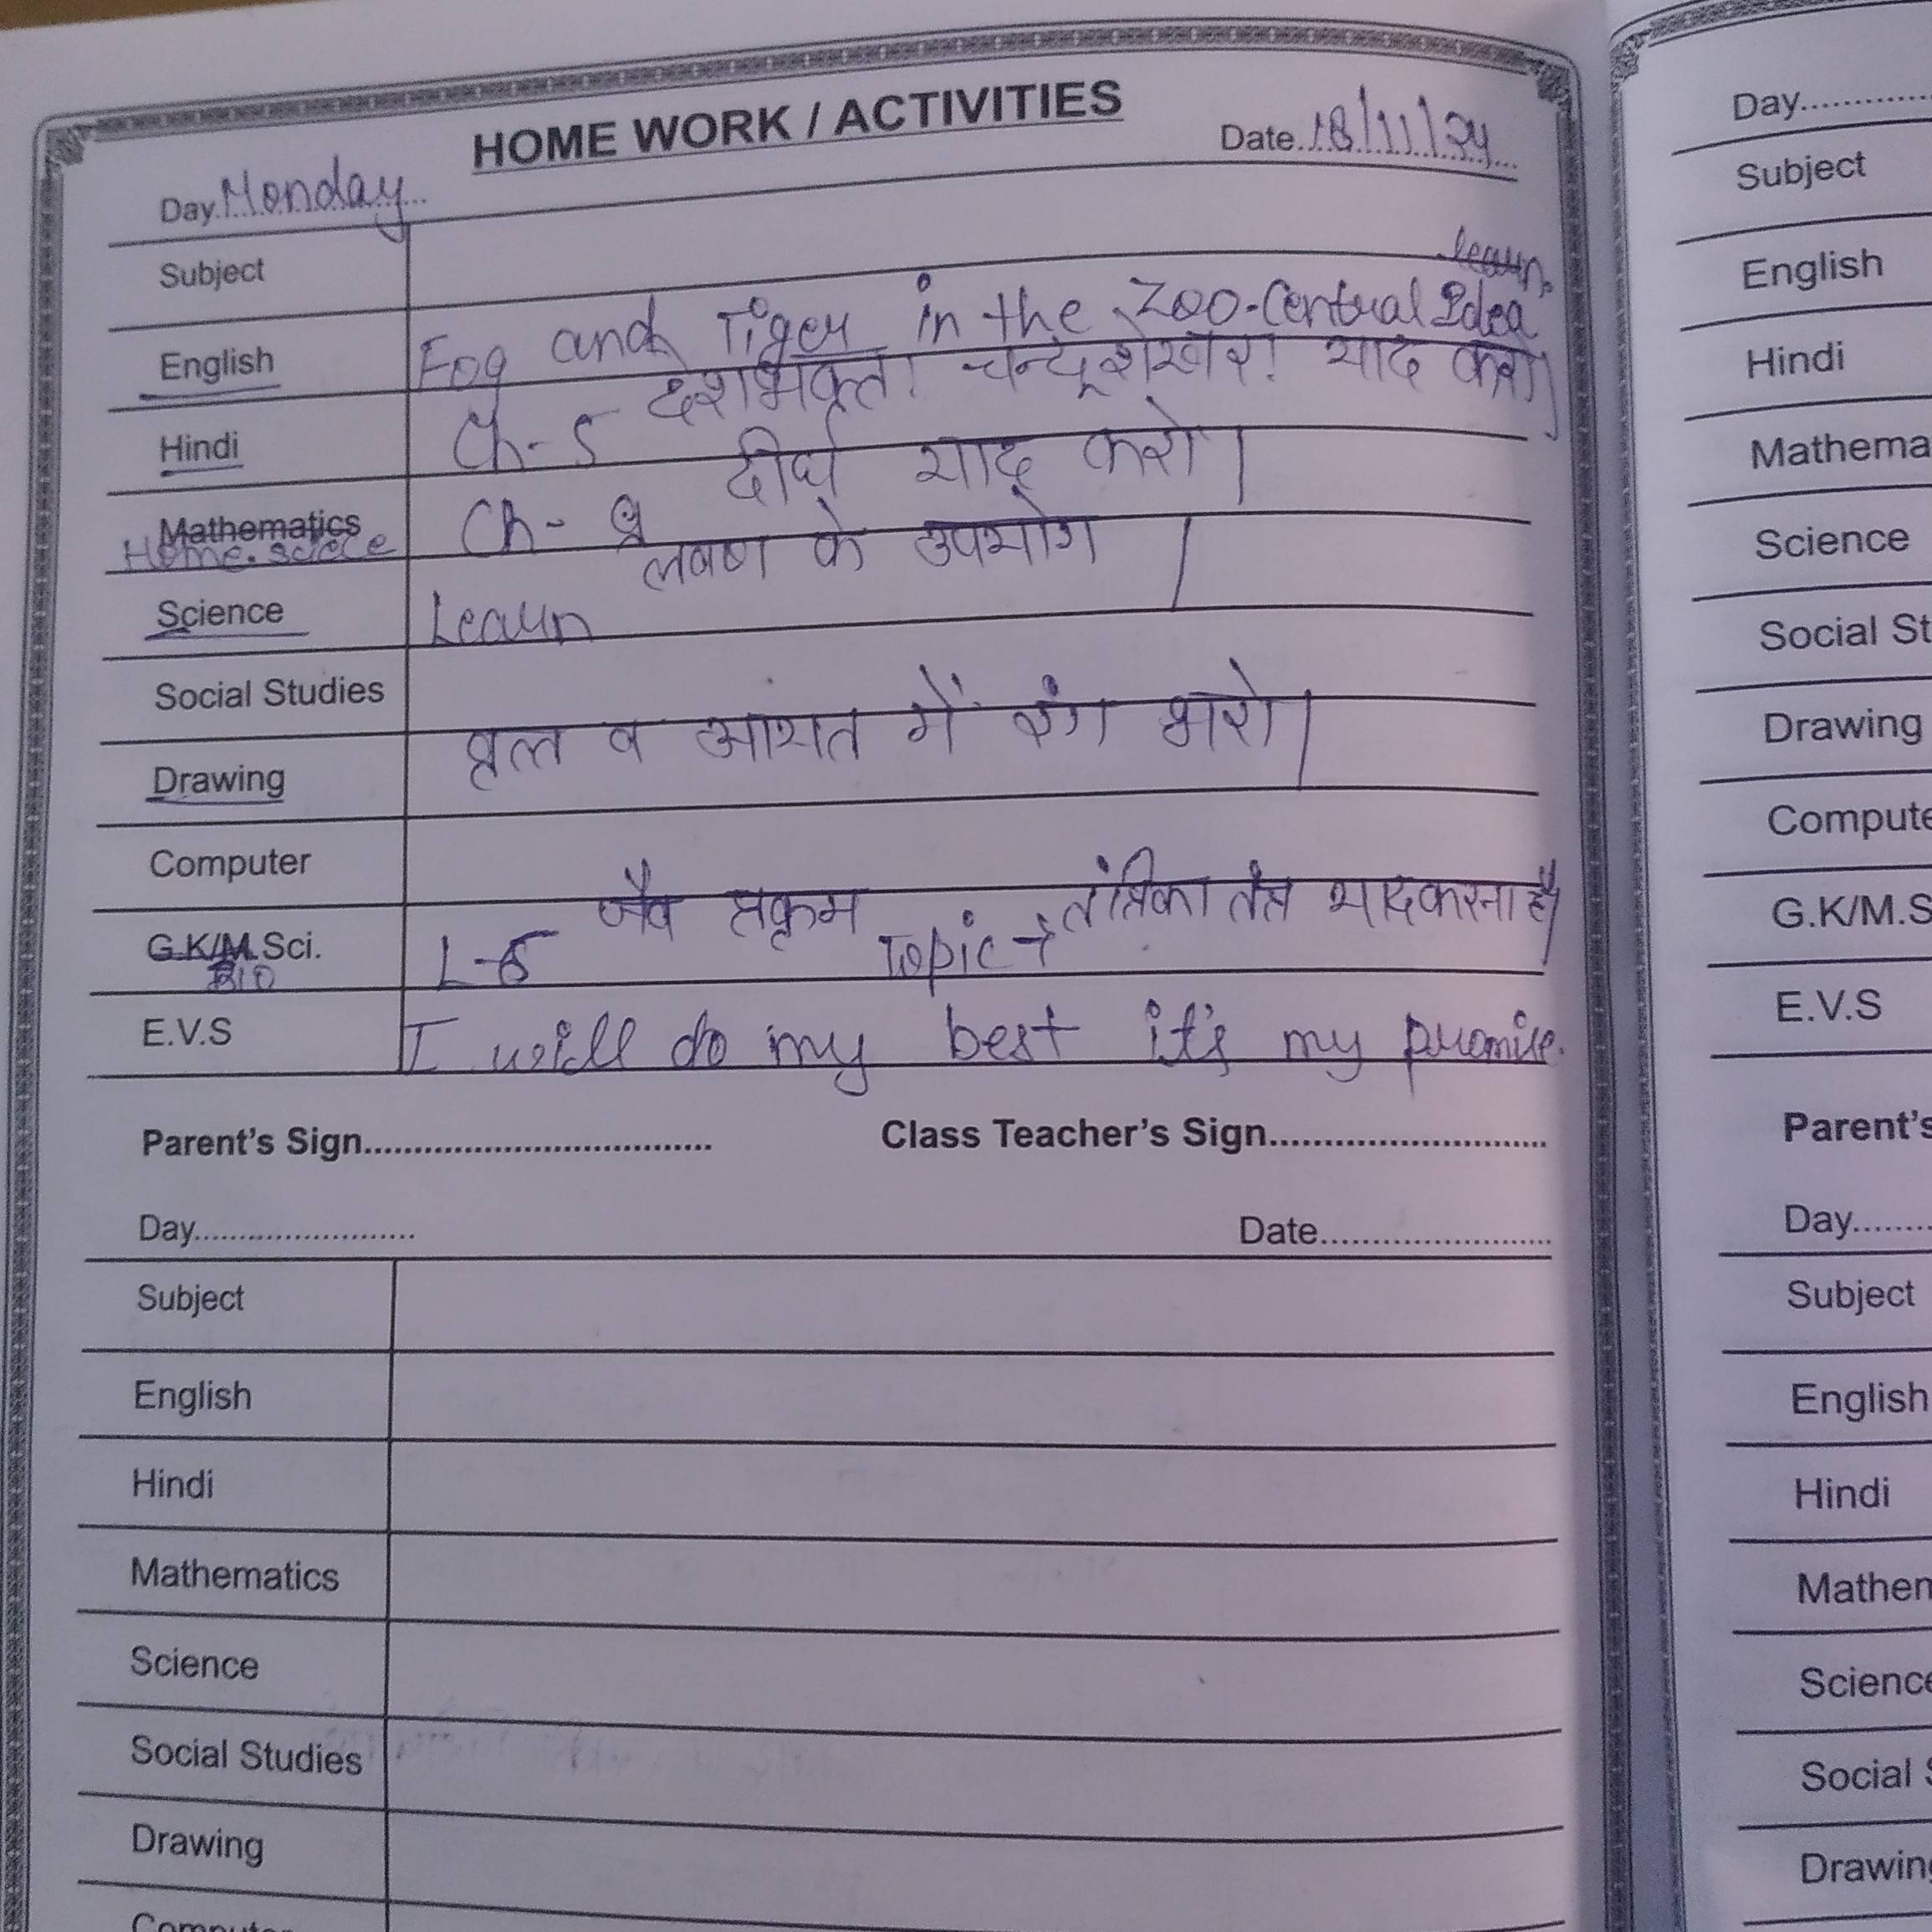 HOME WORK / ACTIVITIES
Day Monday Date 18/11/24
Subject learn.
English Fog and Tiger in the Zoo-Central Idea
Hindi Ch-5 देशभक्त! चन्द्रशेखर! याद करो।
Mathematics Home.sciece Ch- दीर्घ याद करो।
Science Learn लवण के उपयोग।
Social Studies
Drawing वृत्त व आयत में रंग भरो।
Computer
G.K/M.Sci. BIO L-5 जैव प्रक्रम Topic → तंत्रिका तंत्र याद करना है।
E.V.S I will do my best it's my promise.
Parent's Sign Class Teacher's Sign
Day Date
Subject
English
Hindi
Mathematics
Science
Social Studies
Drawing
Day
Subject
English
Hindi
Mathema
Science
Social St
Drawing
Compute
G.K/M.S
E.V.S
Parent's
Day
Subject
English
Hindi
Mathem
Science
Social S
Drawing